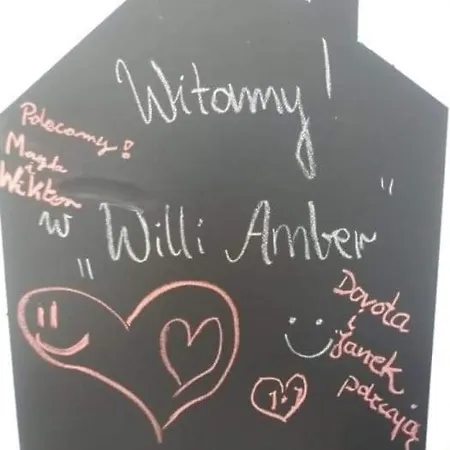 Witamy!
Polecamy!
Magda
i
Wiktor
w "Willi Amber"
Dorota
i
Janek
polecają